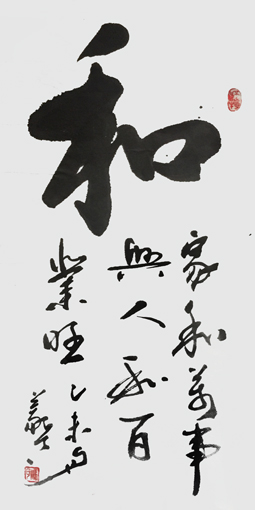 和
家和萬事
興人和百
業旺乙未